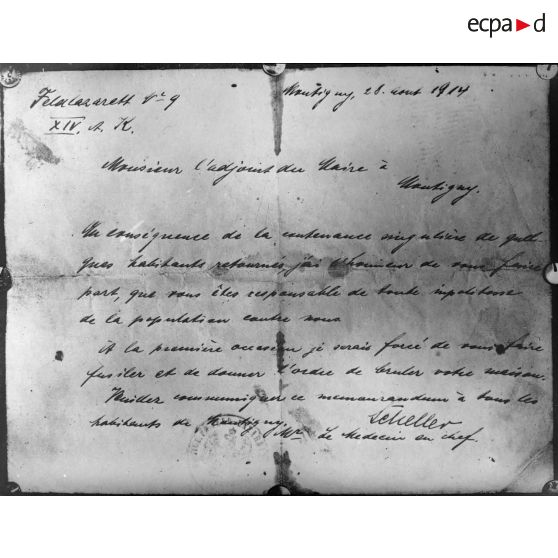 ecpa d
Feldlazarett Nr 9
XIV. A. K.
Montigny, 28. aout 1914
Monsieur l'adjoint du Maire à
Montigny.
En conséquence de la contenance singulière de quel-
ques habitants retournés, j'ai l'honneur de vous faire
part, que vous êtes responsable de toute impolitesse
de la population contre nous.
A la première occasion je serais forcé de vous faire
fusiler et de donner l'ordre de bruler votre maison.
Veuillez communiquer ce memorandum à tous les
habitants de Montigny.
Scheller
Le Medecin en chef